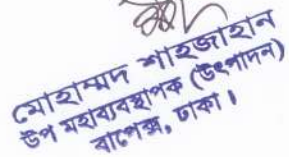 মোহাম্মদ শাহজাহান
উপ মহাব্যবস্থাপক (উৎপাদন)
বাপেক্স, ঢাকা।